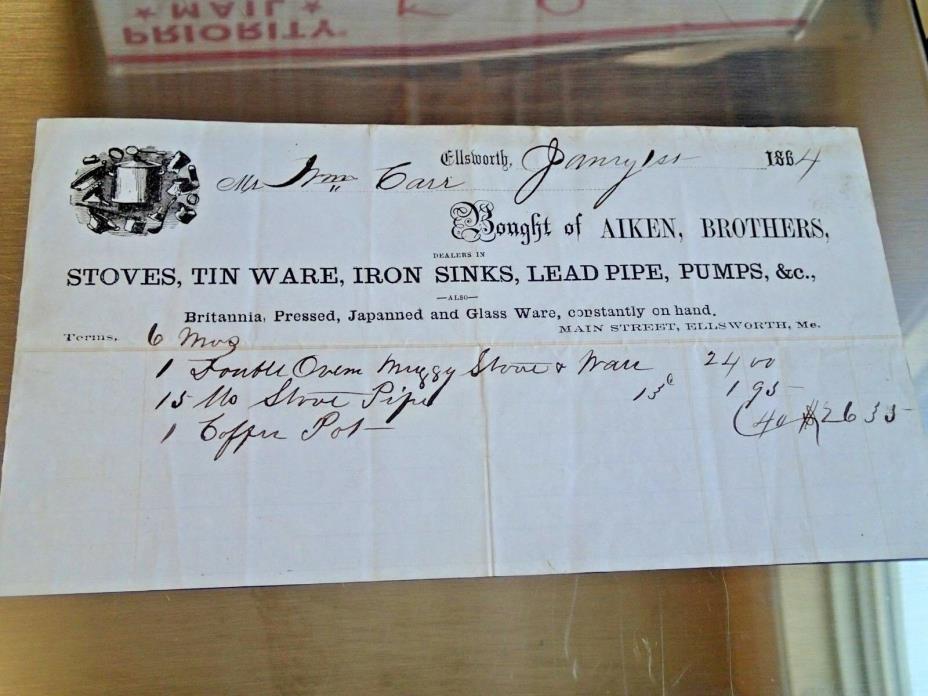 ★ MAIL ★
PRIORITY
Ellsworth, Janry 1st 1864
Mr Wm Carr
Bought of AIKEN, BROTHERS,
DEALERS IN
STOVES, TIN WARE, IRON SINKS, LEAD PIPE, PUMPS, &c.,
—ALSO—
Britannia, Pressed, Japanned and Glass Ware, constantly on hand.
Terms, 6 Mos MAIN STREET, ELLSWORTH, Me.
1 Double Oven Stove & Ware 24 00
15 lbs Stove Pipe 13c 1 95
1 Coffee Pot 40 $26 35